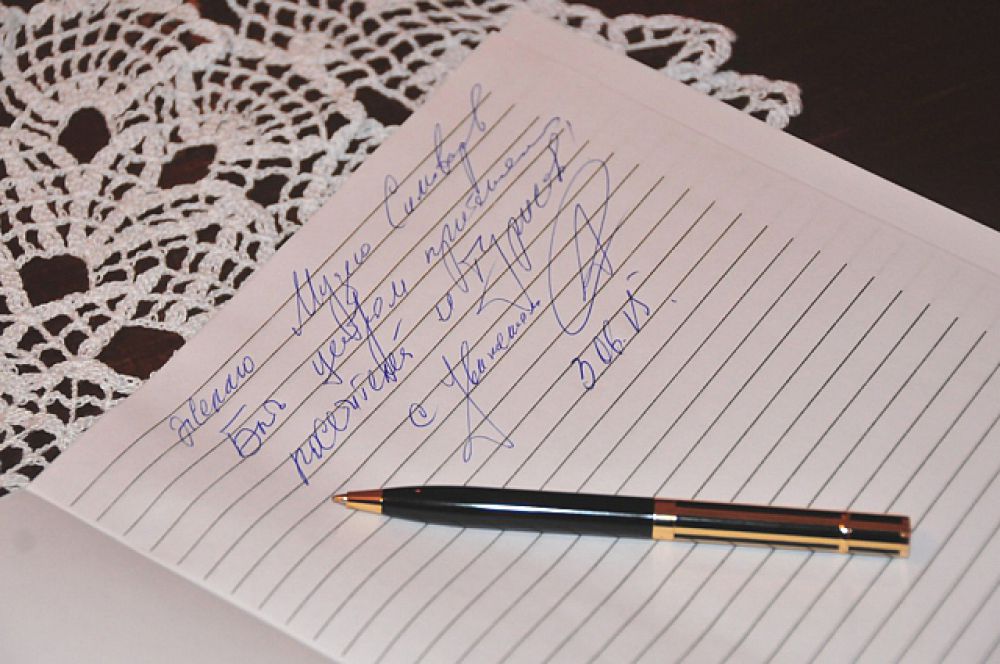 Желаю Музею Самовар
Быть центром притяжения
посетителей и туристов!
с Уважением
3.06.15.